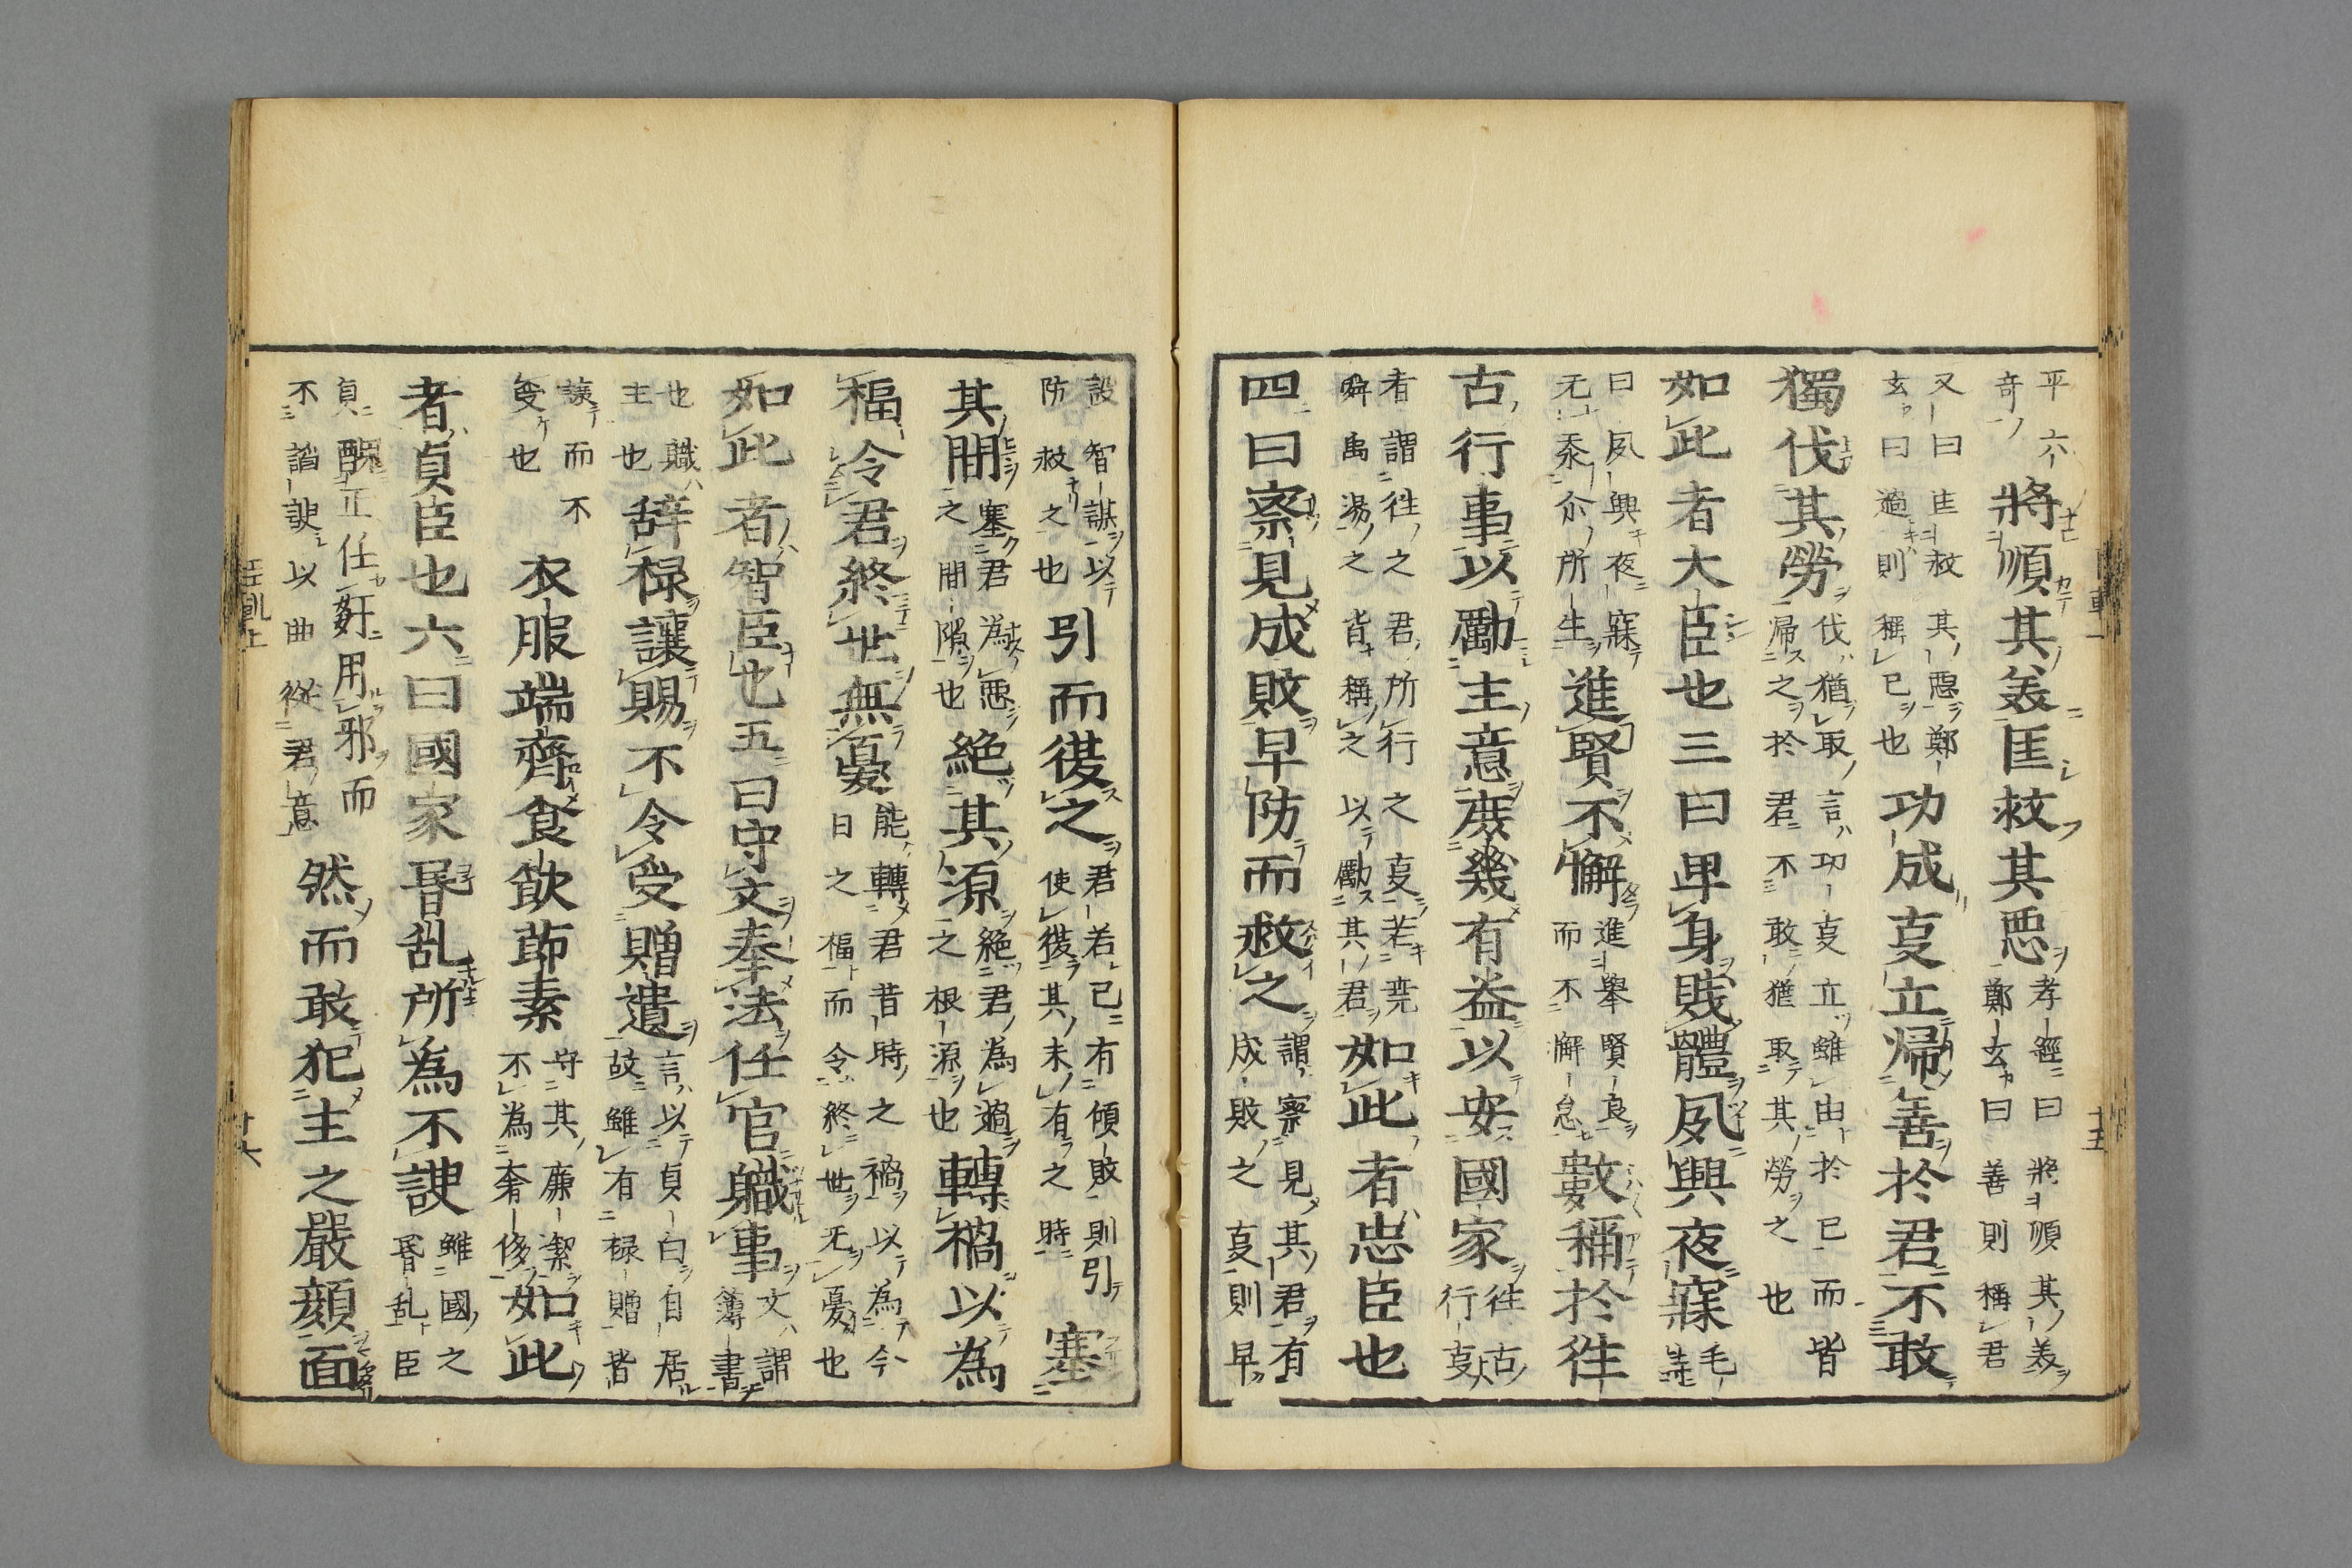 平六奇將順其美匡救其惡孝經曰將順其美鄭玄曰善則稱君
又曰匡救其惡鄭玄曰過則稱己也功成㕝立歸善於君不敢
獨伐其勞伐猶取言功㕝立雖由於己而皆歸之於君不敢猶取其勞之也
如此者大臣也三曰卑身賤體夙興夜寐毛詩
曰夙興夜寐无忝尒所生進賢不懈進舉賢良而不懈怠數稱於往
古行事以勵主意庶幾有益以安國家往古行㕝
者謂往之君所行之㕝若堯舜禹湯之皆稱之以勵其君如此者忠臣也
四曰察見成敗早防而救之謂察見其君有成敗之㕝則早
設智謀以防救之也引而復之君若已有傾敗則引使復其未有之時塞
其間塞君為惡之間隙也絕其源絕君為過之根源也轉禍以為
福令君終世無憂能轉君昔時之禍以為今日之福而令終世无憂也
如此者智臣也五曰守文奉法任官職事文謂簿書
也職主也辞祿讓賜不令受贈遺言以貞白自居故雖有祿贈皆
讓而不受也衣服端齊食飲節素守其廉潔不為奢侈如此
者貞臣也六曰國家昬乱所為不諛雖國之昬乱臣
貞醜正任姧用邪而不諂諛以曲從君意然而敢犯主之嚴顏面
臣軌上
十五
十六